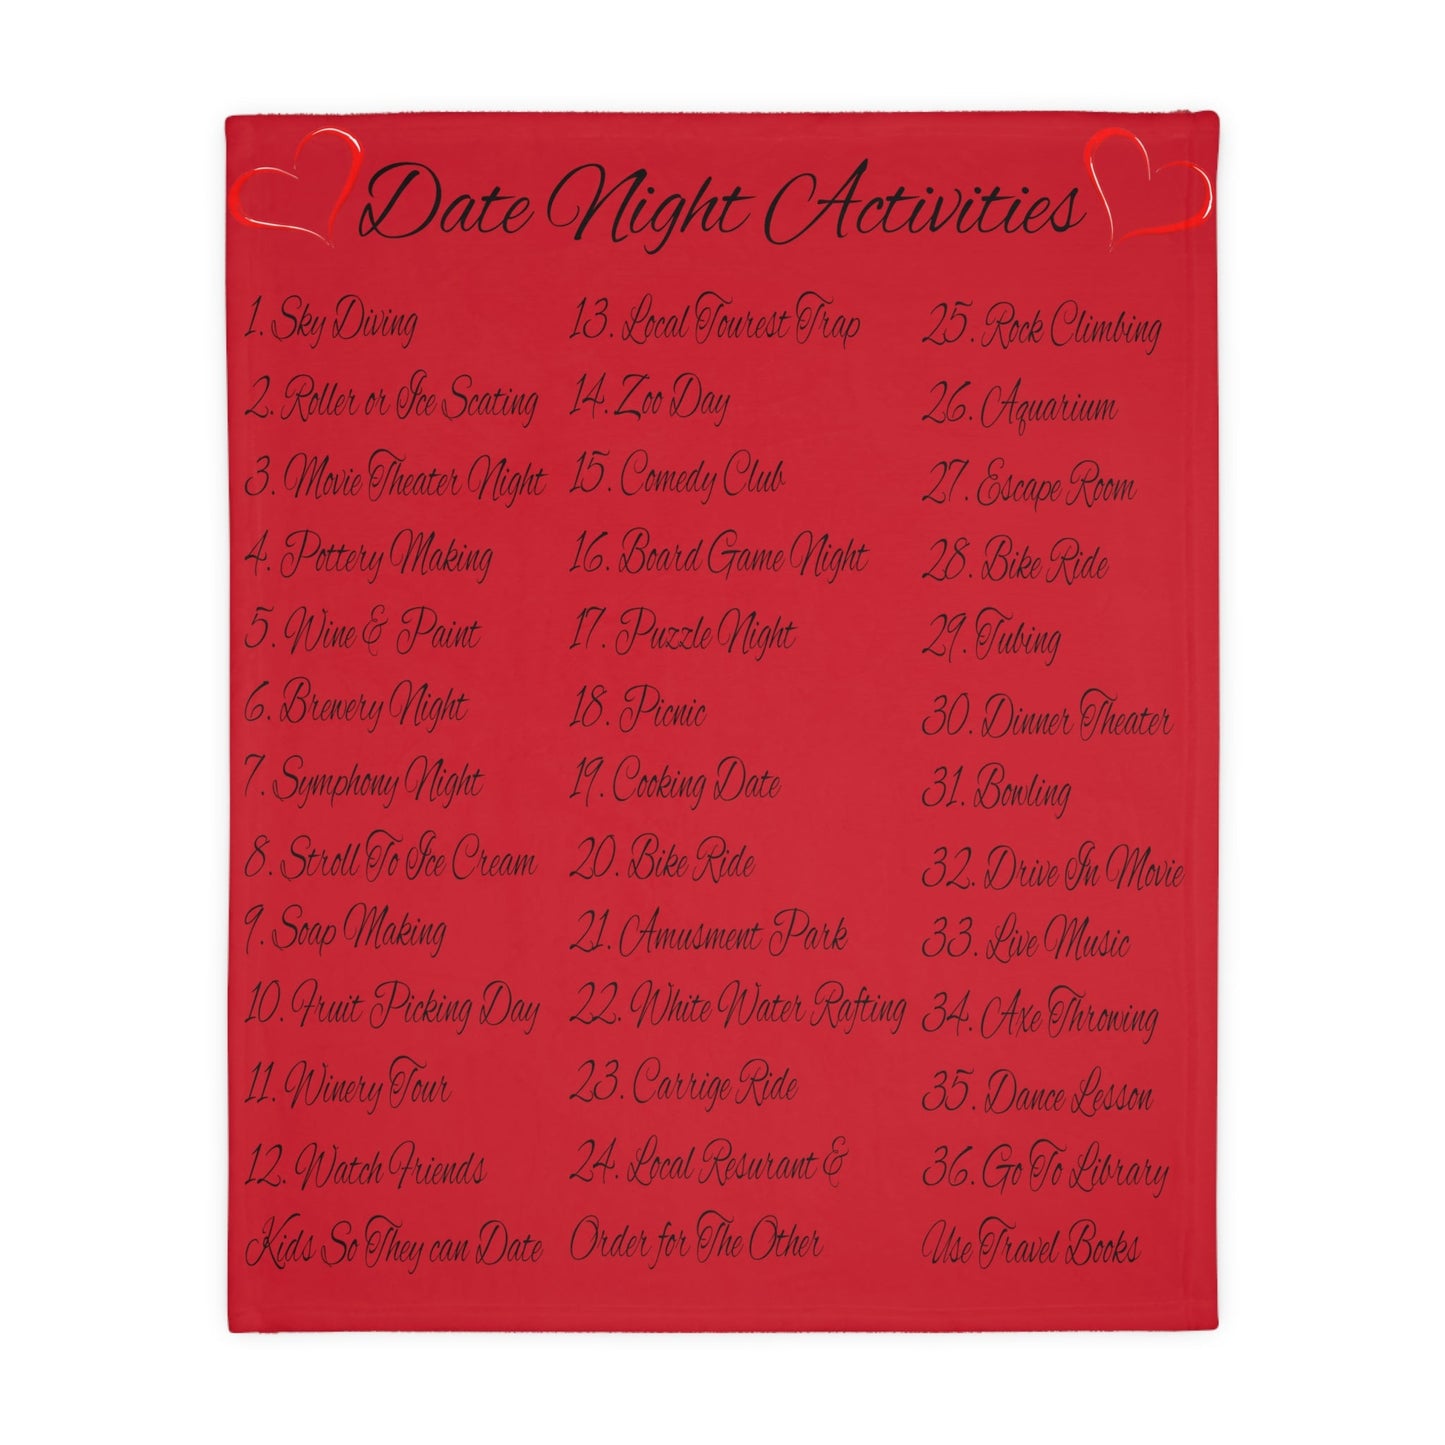 Date Night Activities
1. Sky Diving
2. Roller or Ice Scating
3. Movie Theater Night
4. Pottery Making
5. Wine & Paint
6. Brewery Night
7. Symphony Night
8. Stroll To Ice Cream
9. Soap Making
10. Fruit Picking Day
11. Winery Tour
12. Watch Friends
Kids So They can Date
13. Local Tourest Trap
14. Zoo Day
15. Comedy Club
16. Board Game Night
17. Puzzle Night
18. Picnic
19. Cooking Date
20. Bike Ride
21. Amusment Park
22. White Water Rafting
23. Carrige Ride
24. Local Resurant &
Order for The Other
25. Rock Climbing
26. Aquarium
27. Escape Room
28. Bike Ride
29. Tubing
30. Dinner Theater
31. Bowling
32. Drive In Movie
33. Live Music
34. Axe Throwing
35. Dance Lesson
36. Go To Library
Use Travel Books